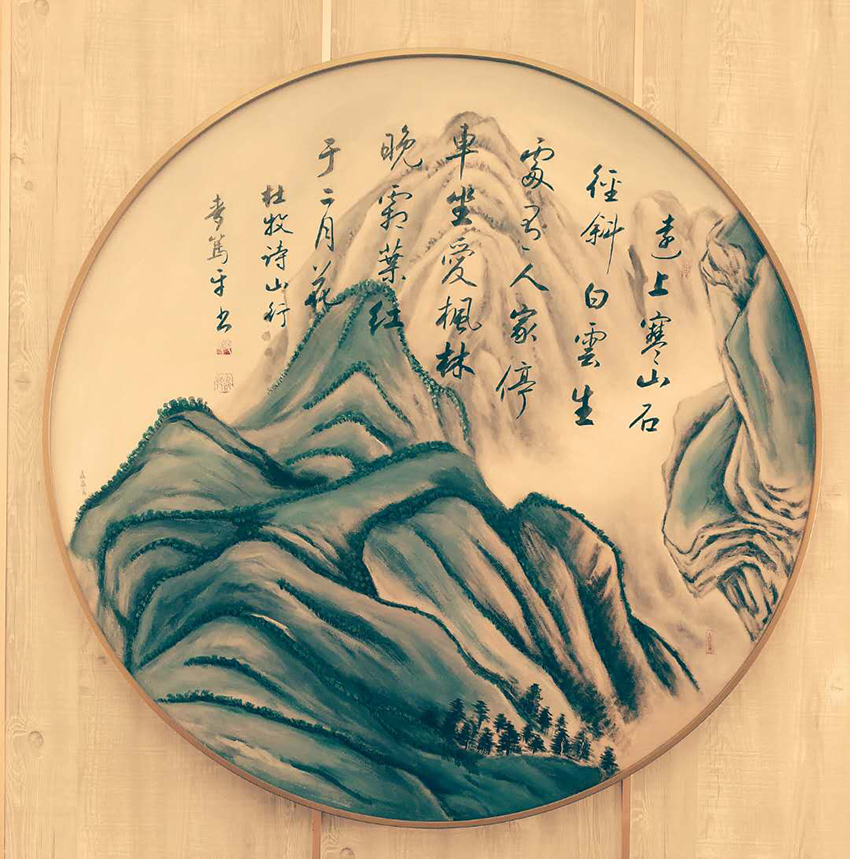 遠上寒山石
徑斜白雲生
處有人家停
車坐愛楓林
晚霜葉红
于二月花
杜牧诗山行
篤平书